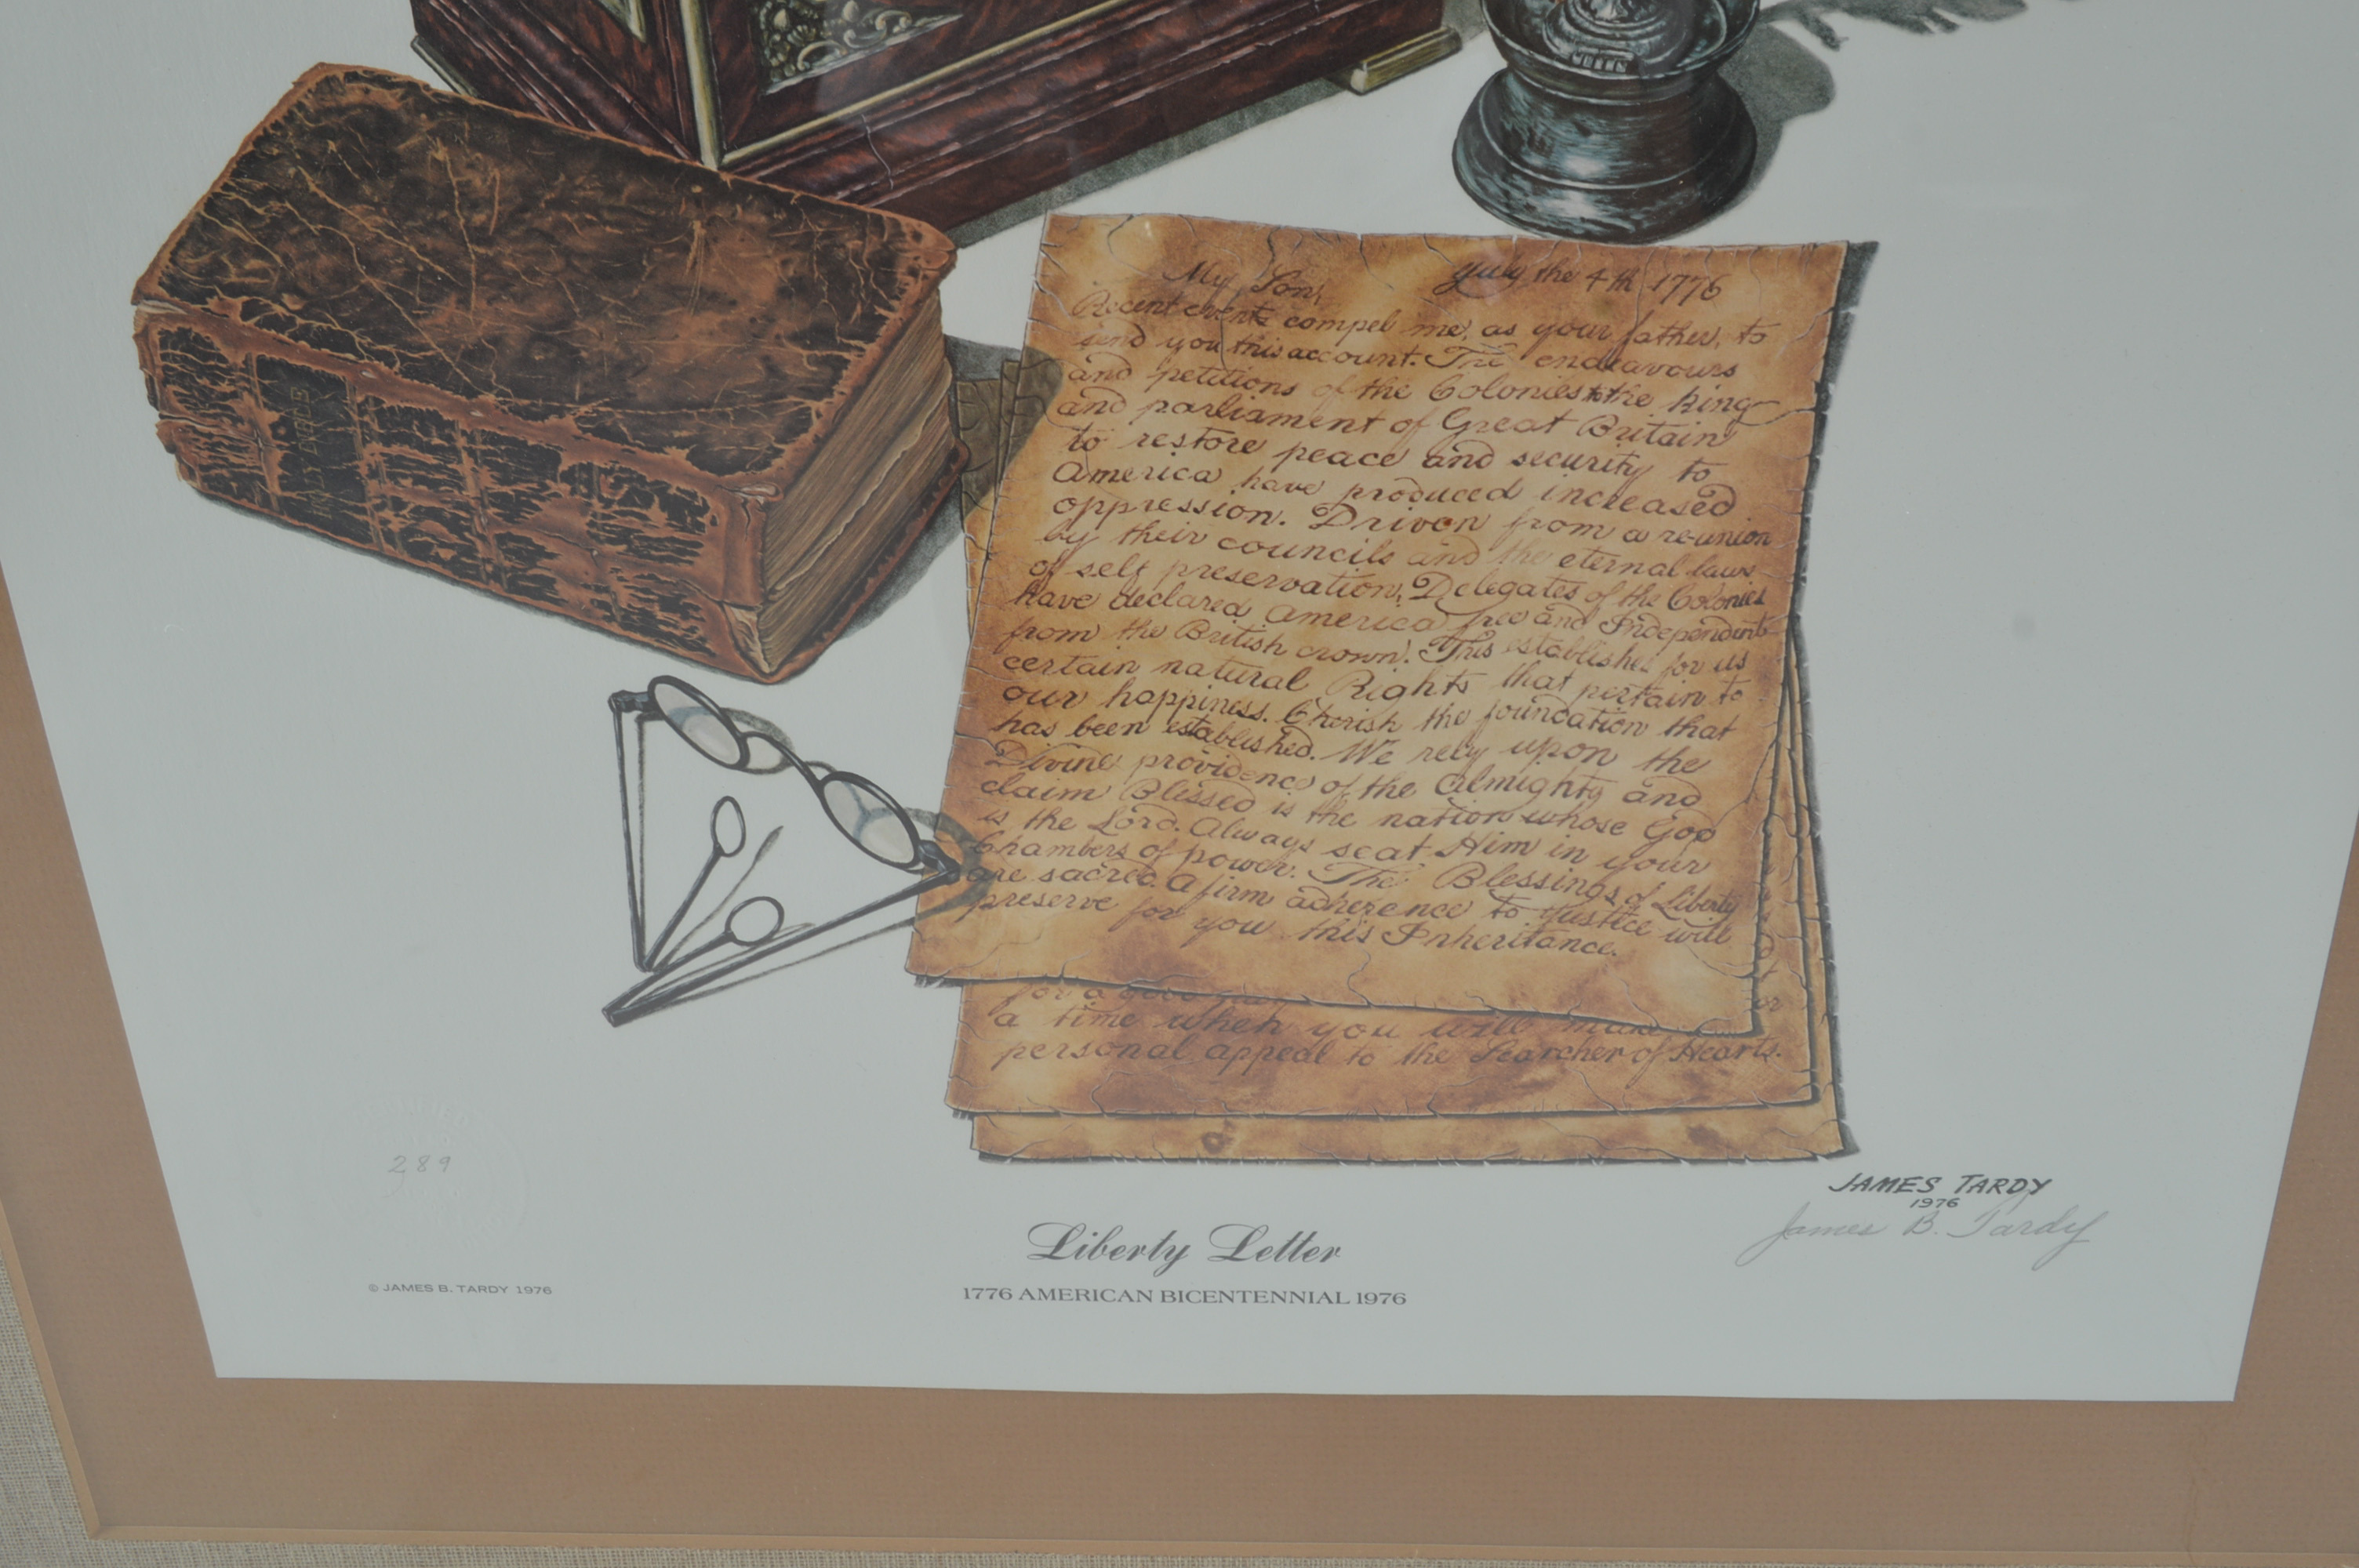 My Son, July the 4th 1776
Recent events compel me, as your father, to
send you this account. The endeavours
and petitions of the Colonies to the King
and parliament of Great Britain
to restore peace and security to
America have produced increased
oppression. Driven from a reunion
by their councils and the eternal laws
of self preservation, Delegates of the Colonies
have declared America free and Independent
from the British crown. This establishes for us
certain natural Rights that pertain to
our happiness. Cherish the foundation that
has been established. We rely upon the
Divine providence of the Almighty and
claim Blessed is the nation whose God
is the Lord. Always seat Him in your
Chambers of power. The Blessings of Liberty
are sacred. A firm adherence to Justice will
preserve for you this Inheritance.
for a good
or
a time when you will make
personal appeal to the Searcher of Hearts.
289
JAMES TARDY
1976
James B. Tardy
Liberty Letter
© JAMES B. TARDY 1976
1776 AMERICAN BICENTENNIAL 1976